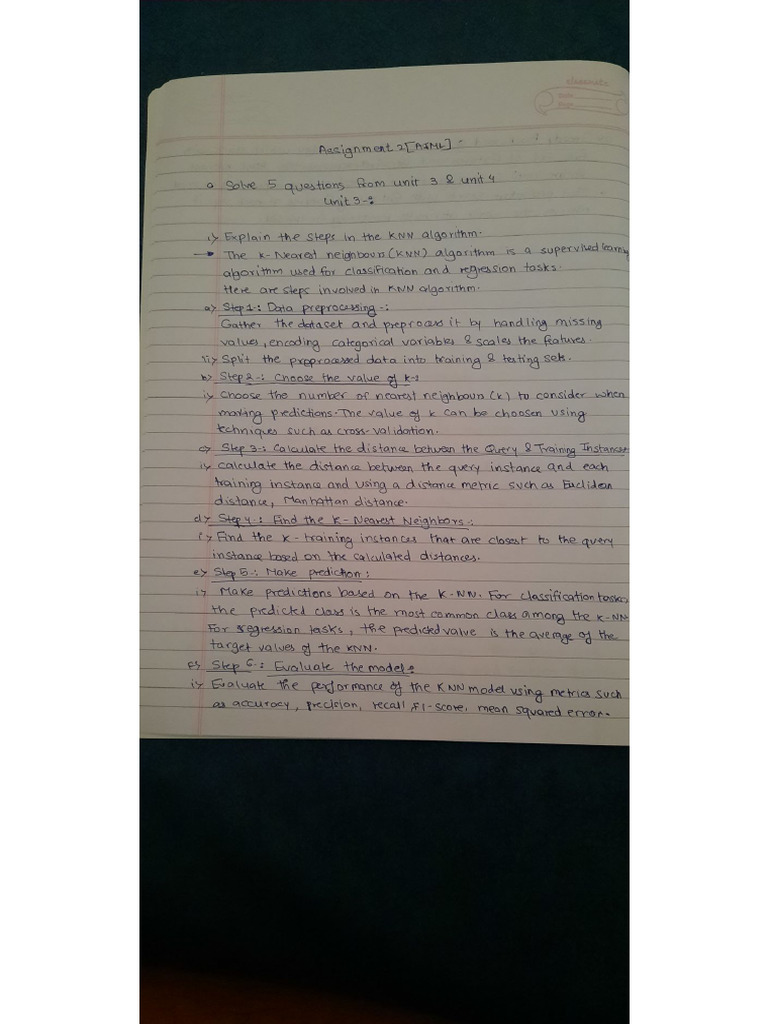 classmate
Date
Page
Assignment 2 [AIML]
Solve 5 questions from unit 3 & unit 4
Unit 3-:
i) Explain the steps in the KNN algorithm.
→ The K-Nearest neighbours (KNN) algorithm is a supervised learning
algorithm used for classification and regression tasks.
Here are steps involved in KNN algorithm.
a) Step 1-: Data preprocessing -:
Gather the dataset and preprocess it by handling missing
values, encoding categorical variables & scales the features.
ii) Split the preprocessed data into training & testing sets.
b) Step 2-: Choose the value of k-:
i) Choose the number of nearest neighbours (k) to consider when
making predictions. The value of k can be choosen using
techniques such as cross-validation.
c) Step 3-: Calculate the distance between the Query & Training Instances
i) calculate the distance between the query instance and each
training instance and using a distance metric such as Euclidean
distance, Manhattan distance.
d) Step 4-: Find the K-Nearest Neighbors-:
i) Find the k-training instances that are closest to the query
instance based on the calculated distances.
e) Step 5-: Make prediction:
i) Make predictions based on the K-NN. For classification tasks,
the predicted class is the most common class among the K-NN
For regression tasks, the predicted value is the average of the
target values of the KNN.
f) Step 6-: Evaluate the model:
i) Evaluate the performance of the KNN model using metrics such
as accuracy, precision, recall, F1-score, mean squared error.